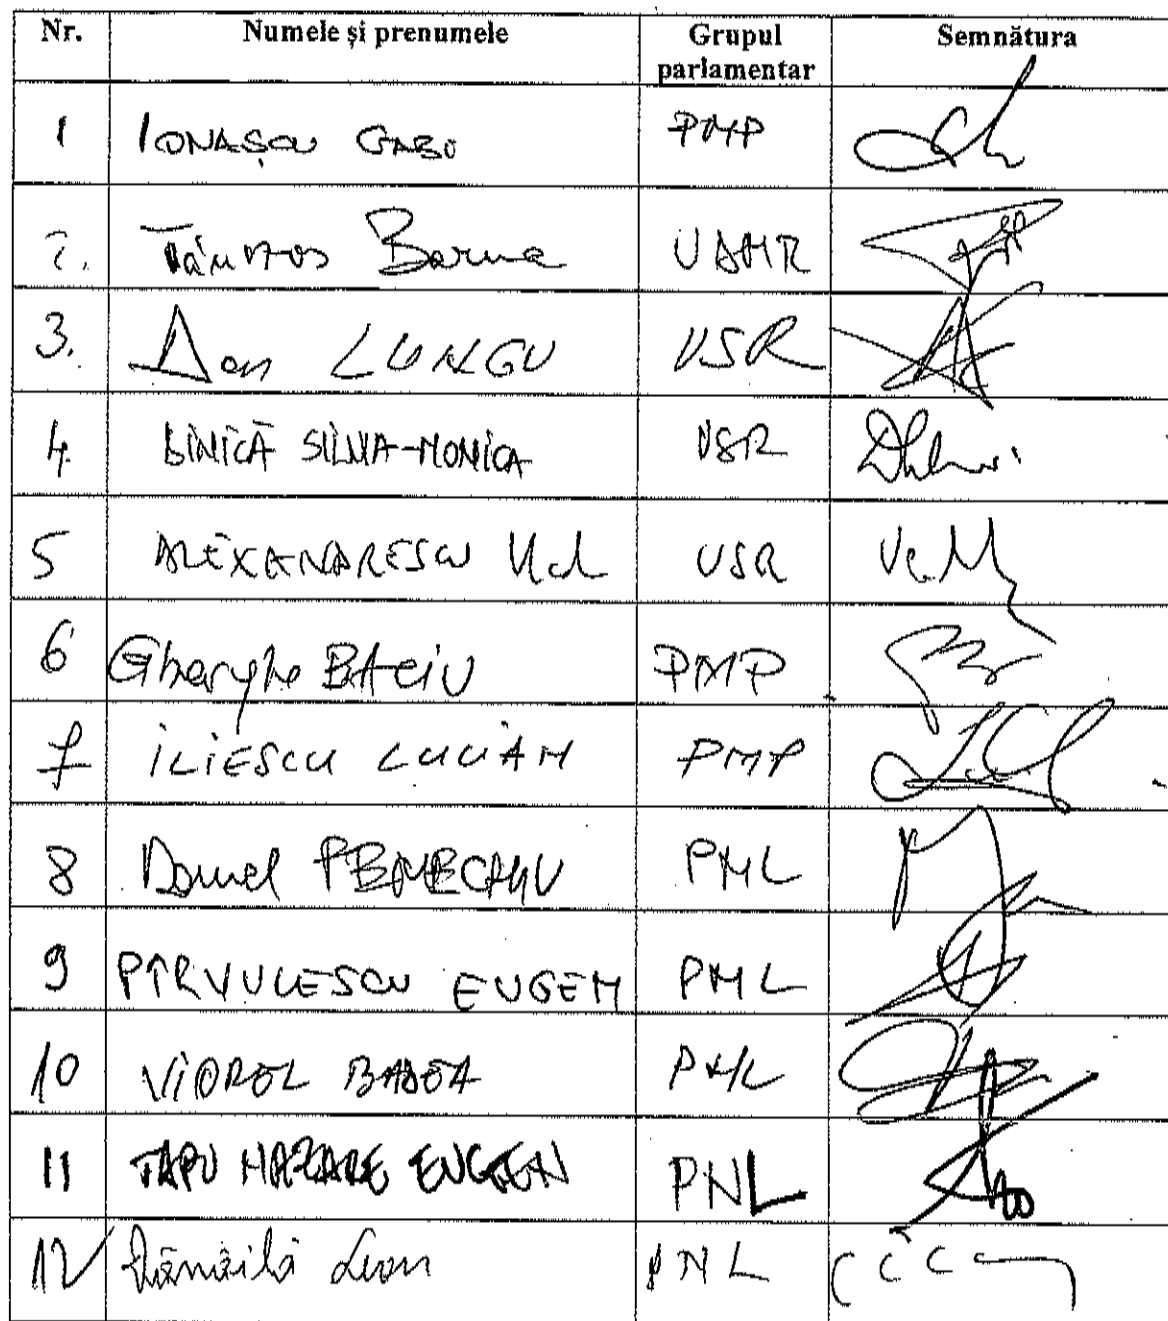 Nr. Numele și prenumele Grupul parlamentar Semnătura
1 IONAȘCU GABI PMP
2. Tánczos Barna UDMR
3. Dan LUNGU USR
4. DINICĂ SILVIA-MONICA USR
5 ALEXANDRESCU Vlad USR
6 Gheorghe BACIU PMP
7 ILIESCU LUCIAN PMP
8 Daniel PNL
9 PÎRVULESCU EUGEN PNL
10 VIOREL BADEA PNL
11 ȚAPU NAZARE EUGEN PNL
12 Dănăilă Leon PNL